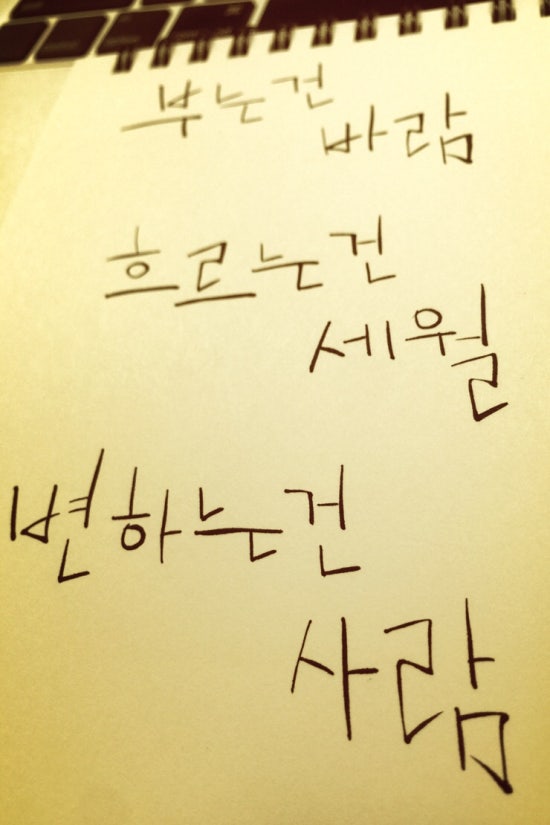 부는건
바람
흐르는건
세월
변하는건
사람